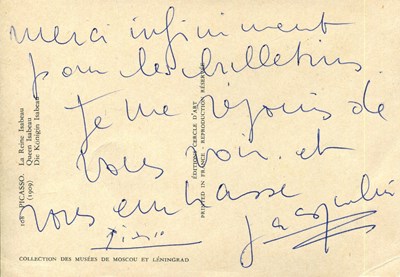 merci infiniment
pour les bulletins.
Je me réjouis de
vous voir et
vous embrasse
Jacqueline
Picasso
108 PICASSO. La Reine Isabeau
(1909) Queen Isabeau
Die Königin Isabeau
ÉDITIONS CERCLE D'ART
PRINTED IN FRANCE - REPRODUCTION RÉSERVÉE
COLLECTION DES MUSÉES DE MOSCOU ET LÉNINGRAD